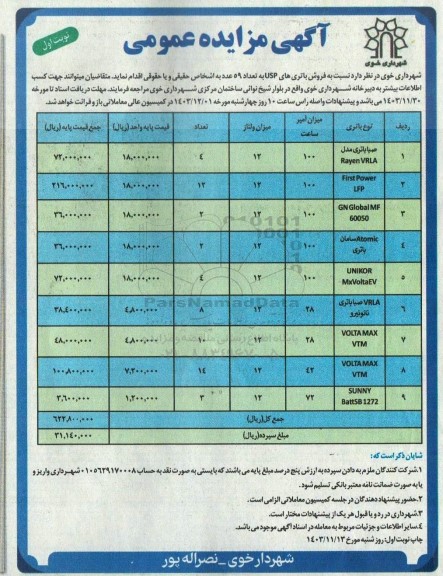 آگهی مزایده عمومی
نوبت اول
شهرداری خوی
شهرداری خوی در نظر دارد نسبت به فروش باتری های USP به تعداد ۵۹ عدد به اشخاص حقیقی و یا حقوقی اقدام نماید. متقاضیان میتوانند جهت کسب
اطلاعات بیشتر به دبیر خانه شهرداری خوی واقع در بلوار شیخ نوائی ساختمان مرکزی شهرداری خوی مراجعه فرمایند. مهلت دریافت اسناد تا مورخه
۱۴۰۳/۱۱/۳۰ می باشد و پیشنهادات واصله راس ساعت ۱۰ روز چهارشنبه مورخه ۱۴۰۳/۱۲/۰۱ در کمیسیون عالی معاملاتی باز و قرائت خواهد شد.
ردیف نوع باتری میزان آمپر ساعت میزان ولتاژ تعداد قیمت پایه واحد (ریال) جمع قیمت پایه (ریال)
۱ صبا باتری مدل Rayen VRLA ۱۰۰ ۱۲ ۴ ۱۸,۰۰۰,۰۰۰ ۷۲,۰۰۰,۰۰۰
۲ First Power LFP ۱۰۰ ۱۲ ۱۲ ۱۸,۰۰۰,۰۰۰ ۲۱۶,۰۰۰,۰۰۰
۳ GN Global MF 60050 ۱۰۰ ۱۲ ۲ ۱۸,۰۰۰,۰۰۰ ۳۶,۰۰۰,۰۰۰
۴ Atomic سامان باتری ۱۰۰ ۱۲ ۲ ۱۸,۰۰۰,۰۰۰ ۳۶,۰۰۰,۰۰۰
۵ UNIKOR MxVoltaEV ۱۰۰ ۱۲ ۴ ۱۸,۰۰۰,۰۰۰ ۷۲,۰۰۰,۰۰۰
۶ VRLA صبا باتری نانو نیرو ۲۸ ۱۲ ۸ ۴,۸۰۰,۰۰۰ ۳۸,۴۰۰,۰۰۰
۷ VOLTA MAX VTM ۲۸ ۱۲ ۴,۸۰۰,۰۰۰ ۴۸,۰۰۰,۰۰۰
۸ VOLTA MAX VTM ۴۲ ۱۲ ۱۴ ۷,۲۰۰,۰۰۰ ۱۰۰,۸۰۰,۰۰۰
۹ SUNNY BattSB 1272 ۷۲ ۱۲ ۳ ۱,۲۰۰,۰۰۰ ۳,۶۰۰,۰۰۰
جمع کل (ریال) ۶۲۲,۸۰۰,۰۰۰
مبلغ سپرده (ریال) ۳۱,۱۴۰,۰۰۰
ParsNamadData
شایان ذکر است که:
۱.شرکت کنندگان ملزم به دادن سپرده به ارزش پنج درصد مبلغ پایه می باشند که بایستی به صورت نقد به حساب ۰۱۰۵۶۲۹۱۷۰۰۰۸ شهرداری واریز و
یا به صورت ضمانت نامه معتبر بانکی تسلیم شود.
۲.حضور پیشنهاد دهندگان در جلسه کمیسیون معاملاتی الزامی است.
۳.شهرداری در رد و یا قبول هر یک از پیشنهادات مختار است.
۴.سایر اطلاعات و جزئیات مربوط به معامله در اسناد آگهی موجود می باشد.
چاپ نوبت اول: روز شنبه مورخ ۱۴۰۳/۱۱/۱۳
شهردار خوی _ نصراله پور